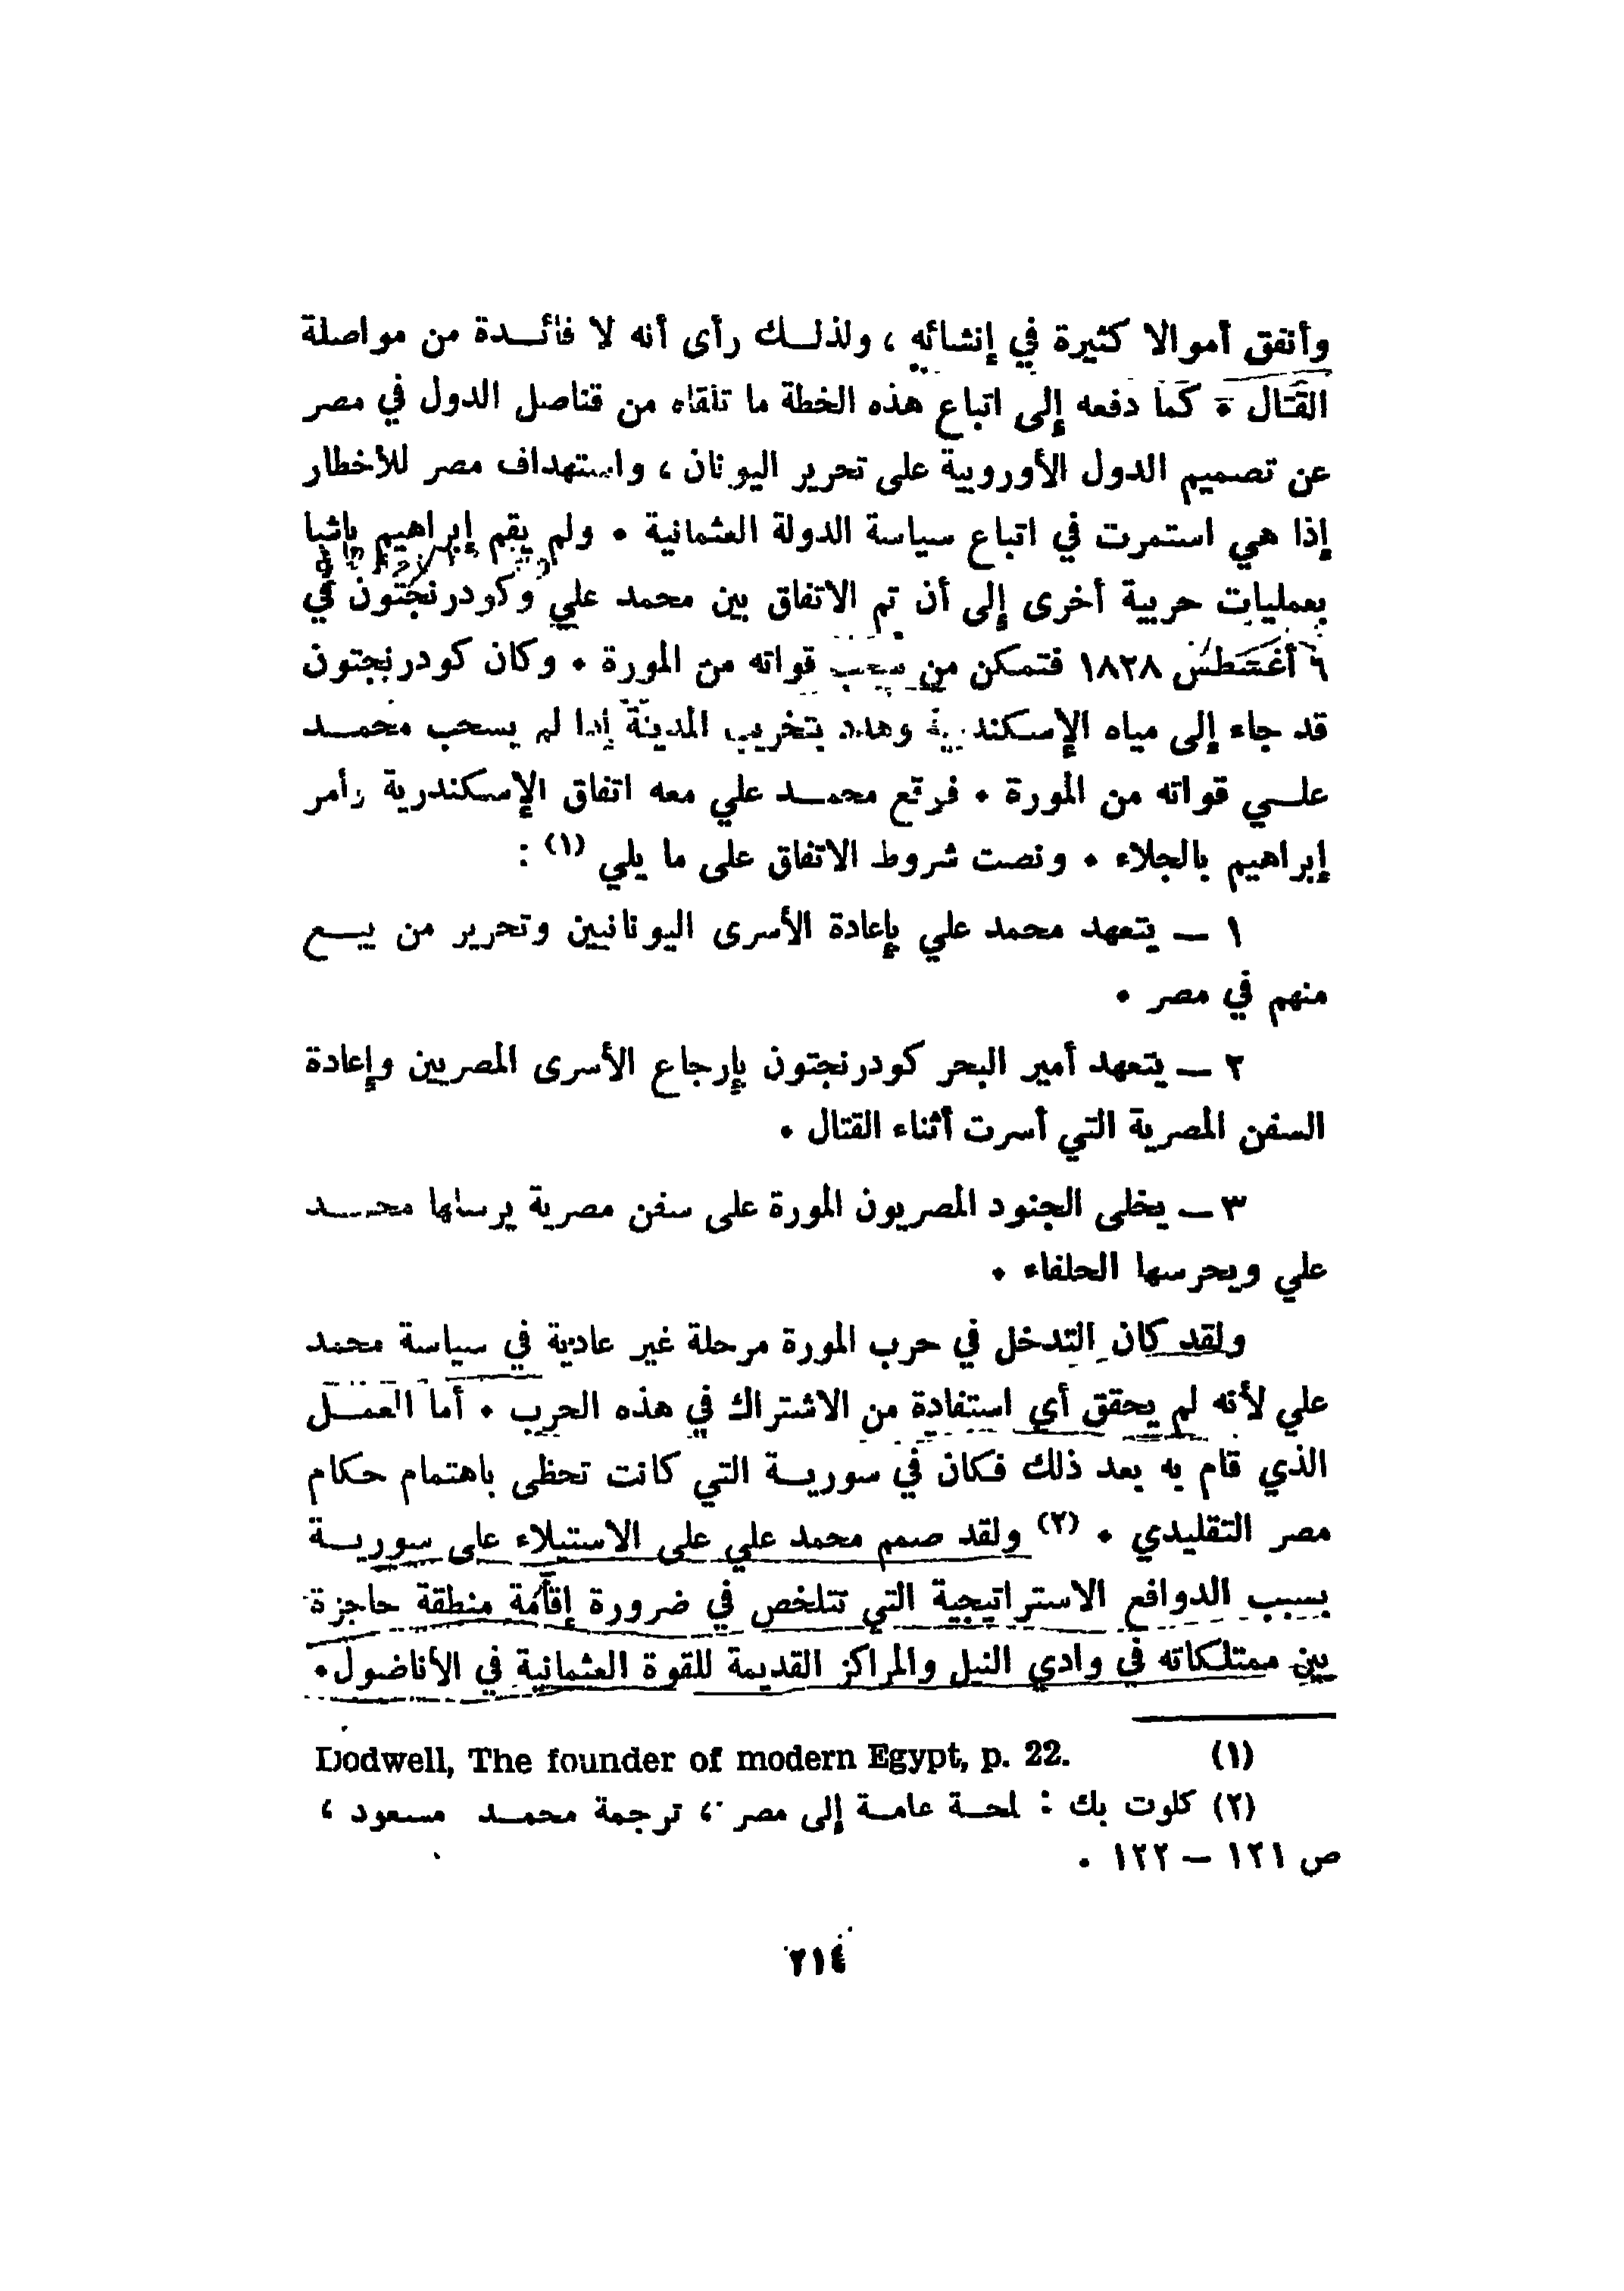 وأنفق أموالا كثيرة في إنشائه ، ولذلــك رأى أنه لا فائــدة من مواصلة
القتال • كما دفعه إلى اتباع هذه الخطة ما تلقاه من قناصل الدول في مصر
عن تصميم الدول الأوروبية على تحرير اليونان ، واستهداف مصر للأخطار
إذا هي استمرت في اتباع سياسة الدولة العثمانية • ولم يقم إبراهيم باشا
بعمليات حربية أخرى إلى أن تم الاتفاق بين محمد علي وكودرنجتون في
٦ أغسطس ١٨٢٨ فتمكن من سحب قواته من المورة • وكان كودرنجتون
قد جاء إلى مياه الإسكندرية وهدد بتخريب المدينة إذا لم يسحب محمــد
علــي قواته من المورة • فوقع محمــد علي معه اتفاق الإسكندرية وأمر
إبراهيم بالجلاء • ونصت شروط الاتفاق على ما يلي (١) :
١ — يتعهد محمد علي بإعادة الأسرى اليونانيين وتحرير من بيــع
منهم في مصر •
٢ — يتعهد أمير البحر كودرنجتون بإرجاع الأسرى المصريين وإعادة
السفن المصرية التي أسرت أثناء القتال •
٣ — يخلى الجنود المصريون المورة على سفن مصرية يرسلها محمــد
علي ويحرسها الحلفاء •
ولقد كان التدخل في حرب المورة مرحلة غير عادية في سياسة محمد
علي لأنه لم يحقق أي استفادة من الاشتراك في هذه الحرب • أما العمــل
الذي قام به بعد ذلك فكان في سوريــة التي كانت تحظى باهتمام حكام
مصر التقليدي • (٢) ولقد صمم محمد علي على الاستيلاء على سوريــة
بسبب الدوافع الاستراتيجية التي تتلخص في ضرورة إقامة منطقة حاجزة
بين ممتلكاته في وادي النيل والمراكز القديمة للقوة العثمانية في الأناضول•
(١) Dodwell, The founder of modern Egypt, p. 22.
(٢) كلوت بك : لمحــة عامــة إلى مصر ، ترجمة محمــد مسعود ،
ص ١٢١ — ١٢٢ •
٢١٤